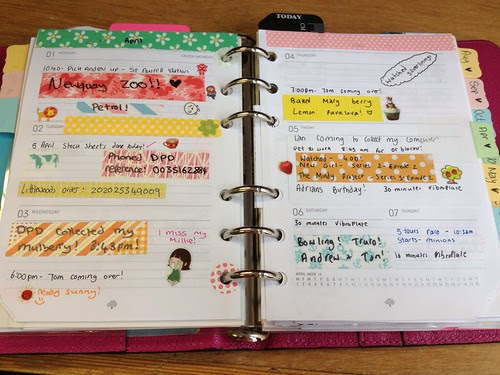 April
01 MONDAY
EASTER MONDAY
10:40 - Pick Andrew up - St Austell station
Newquay ZOO!!
Petrol!
02 TUESDAY
5 April Stock Sheets due today!
Phoned DPD
reference! 0035162384
Littlewoods order: 202025349009
03 WEDNESDAY
DPD collected my
mulberry! 3:48pm!
I miss my
Millie!
6:00pm - Tom coming over!
Really sunny!
TODAY
04 THURSDAY
Watched
7:00pm - Tom coming over!
Baked Mary berry
Lemon Pavalova!
05 FRIDAY
Ian coming to collect my computer
Watched - 400!
New Girl - Series 2 - Episode 2
The Mindy Project - Series 1 - Episode 2
Adrians Birthday!
30 minutes VibroPlate
06 SATURDAY
30 minutes VibroPlate
Bowling - Truro!
Andrew + Tom!
07 SUNDAY
starts - minions
10 minutes VibroPlate
APRIL WEEK 14